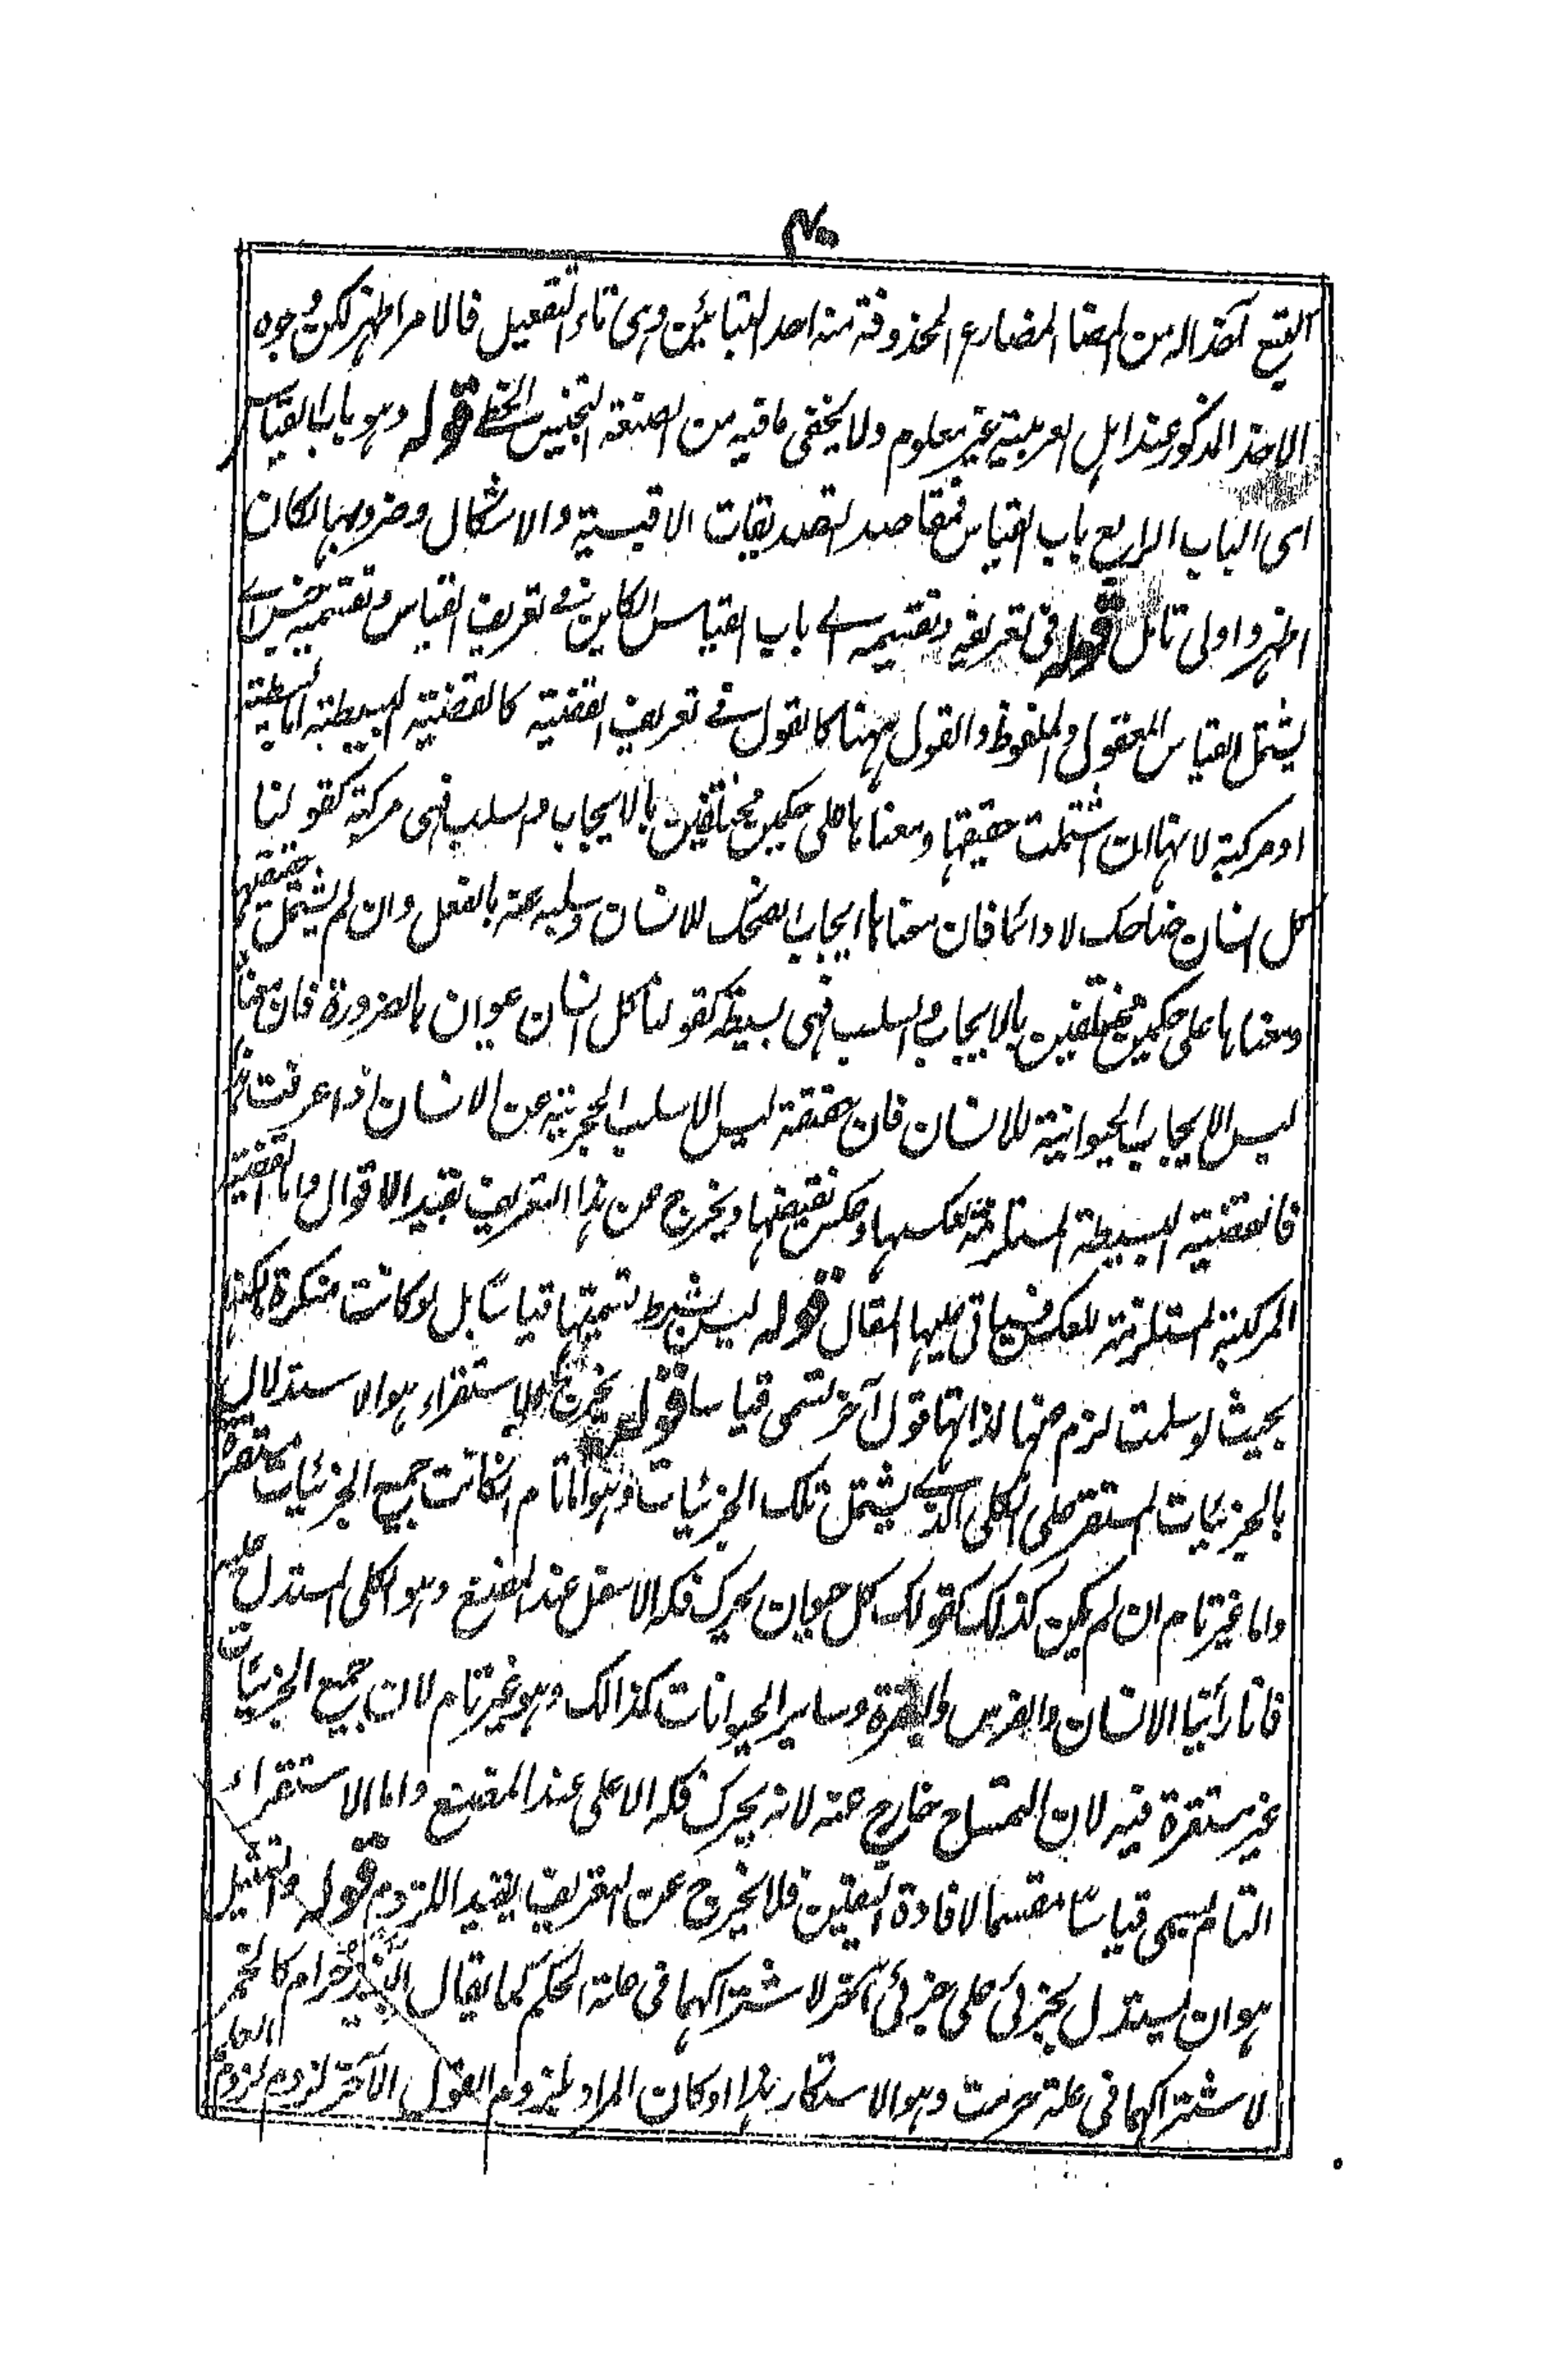 التبع آخذ اله من ايضا المضارع المحذوفة منه احد التائين وهى تاء التفعيل فالامر اظهر لكن وجوه
الاخذ المذكور عند اهل العربية غير معلوم ولا يخفى ما فيه من الصنعة التجنيس الخطے قوله وهو باب القياس
اى الباب الرابع باب القياس فمقاصد التصديقات الاقيسة والاشكال وضروبها لكان
اظهر واولى تامل قوله فى تعريفه وتقسيمه اے باب القياس الكاين فے تعريف القياس وتقسيمه جنس اے
يشتمل القياس المعقول والملفوظ والقول ههنا كالقول فے تعريف القضية كالقضية البسيطة اما بسيطة
او مركبة لانها ان اشتملت حقيقتها ومعناها على حكمين مختلفين بالايجاب والسلب فهى مركبة كقولنا
كل انسان ضاحك لا دائما فان معناها ايجاب الضحك للانسان وسلبه عنه بالفعل وان لم يشتمل حقيقتها
ومعناها على حكمين مختلفين بالايجاب والسلب فهى بسيطة كقولنا كل انسان حيوان بالضرورة فان معناه
ليس الا ايجاب الحيوانية للانسان فان حقيقته ليس الا سلب الحجرية عن الانسان اذا عرفت هذا
فالقضية البسيطة المستلزمة لعكسها وعكس نقيضها ويخرج عن هذا التعريف بقيد الاقوال واما القضية
المركبة المستلزمة للعكس فسياتى عليها المقال قوله ليس بشرط تسميتها قياسا بل لو كانت منكرة لكنها
بحيث لو سلمت لزم عنها لذاتها قول آخر تسمى قياسا قوله يخرج الاستقراء هو الاستدلال
بالجزئيات المستقر على الكلى الذے يشتمل تلك الجزئيات وهو اما تام ان كانت جميع الجزئيات مستقرة
واما غير تام ان لم يكن كذلك كقولك كل حيوان يحرك فكه الاسفل عند المضغ وهو الكلى المستدل عليه
فانا رأينا الانسان والفرس والبقرة وساير الحيوانات كذالك وهو غير تام لان جميع الجزئيات
غير مستقرة فيه لان التمساح خارج عنه لانه يحرك فكه الاعلى عند المضغ واما الاستقراء
التام يسمى قياسا مقسما لافادة اليقين فلا يخرج عن التعريف بقيد اللزوم قوله والتمثيل
هو ان يستدل بجزئى على جزئى آخر لاشتراكهما فى علة الحكم كما يقال النبيذ حرام كالخمر
لاشتراكهما فى علة حرمت وهو الاسكار هذا او كان المراد بلزوم القول الآخر لزومه لزوم